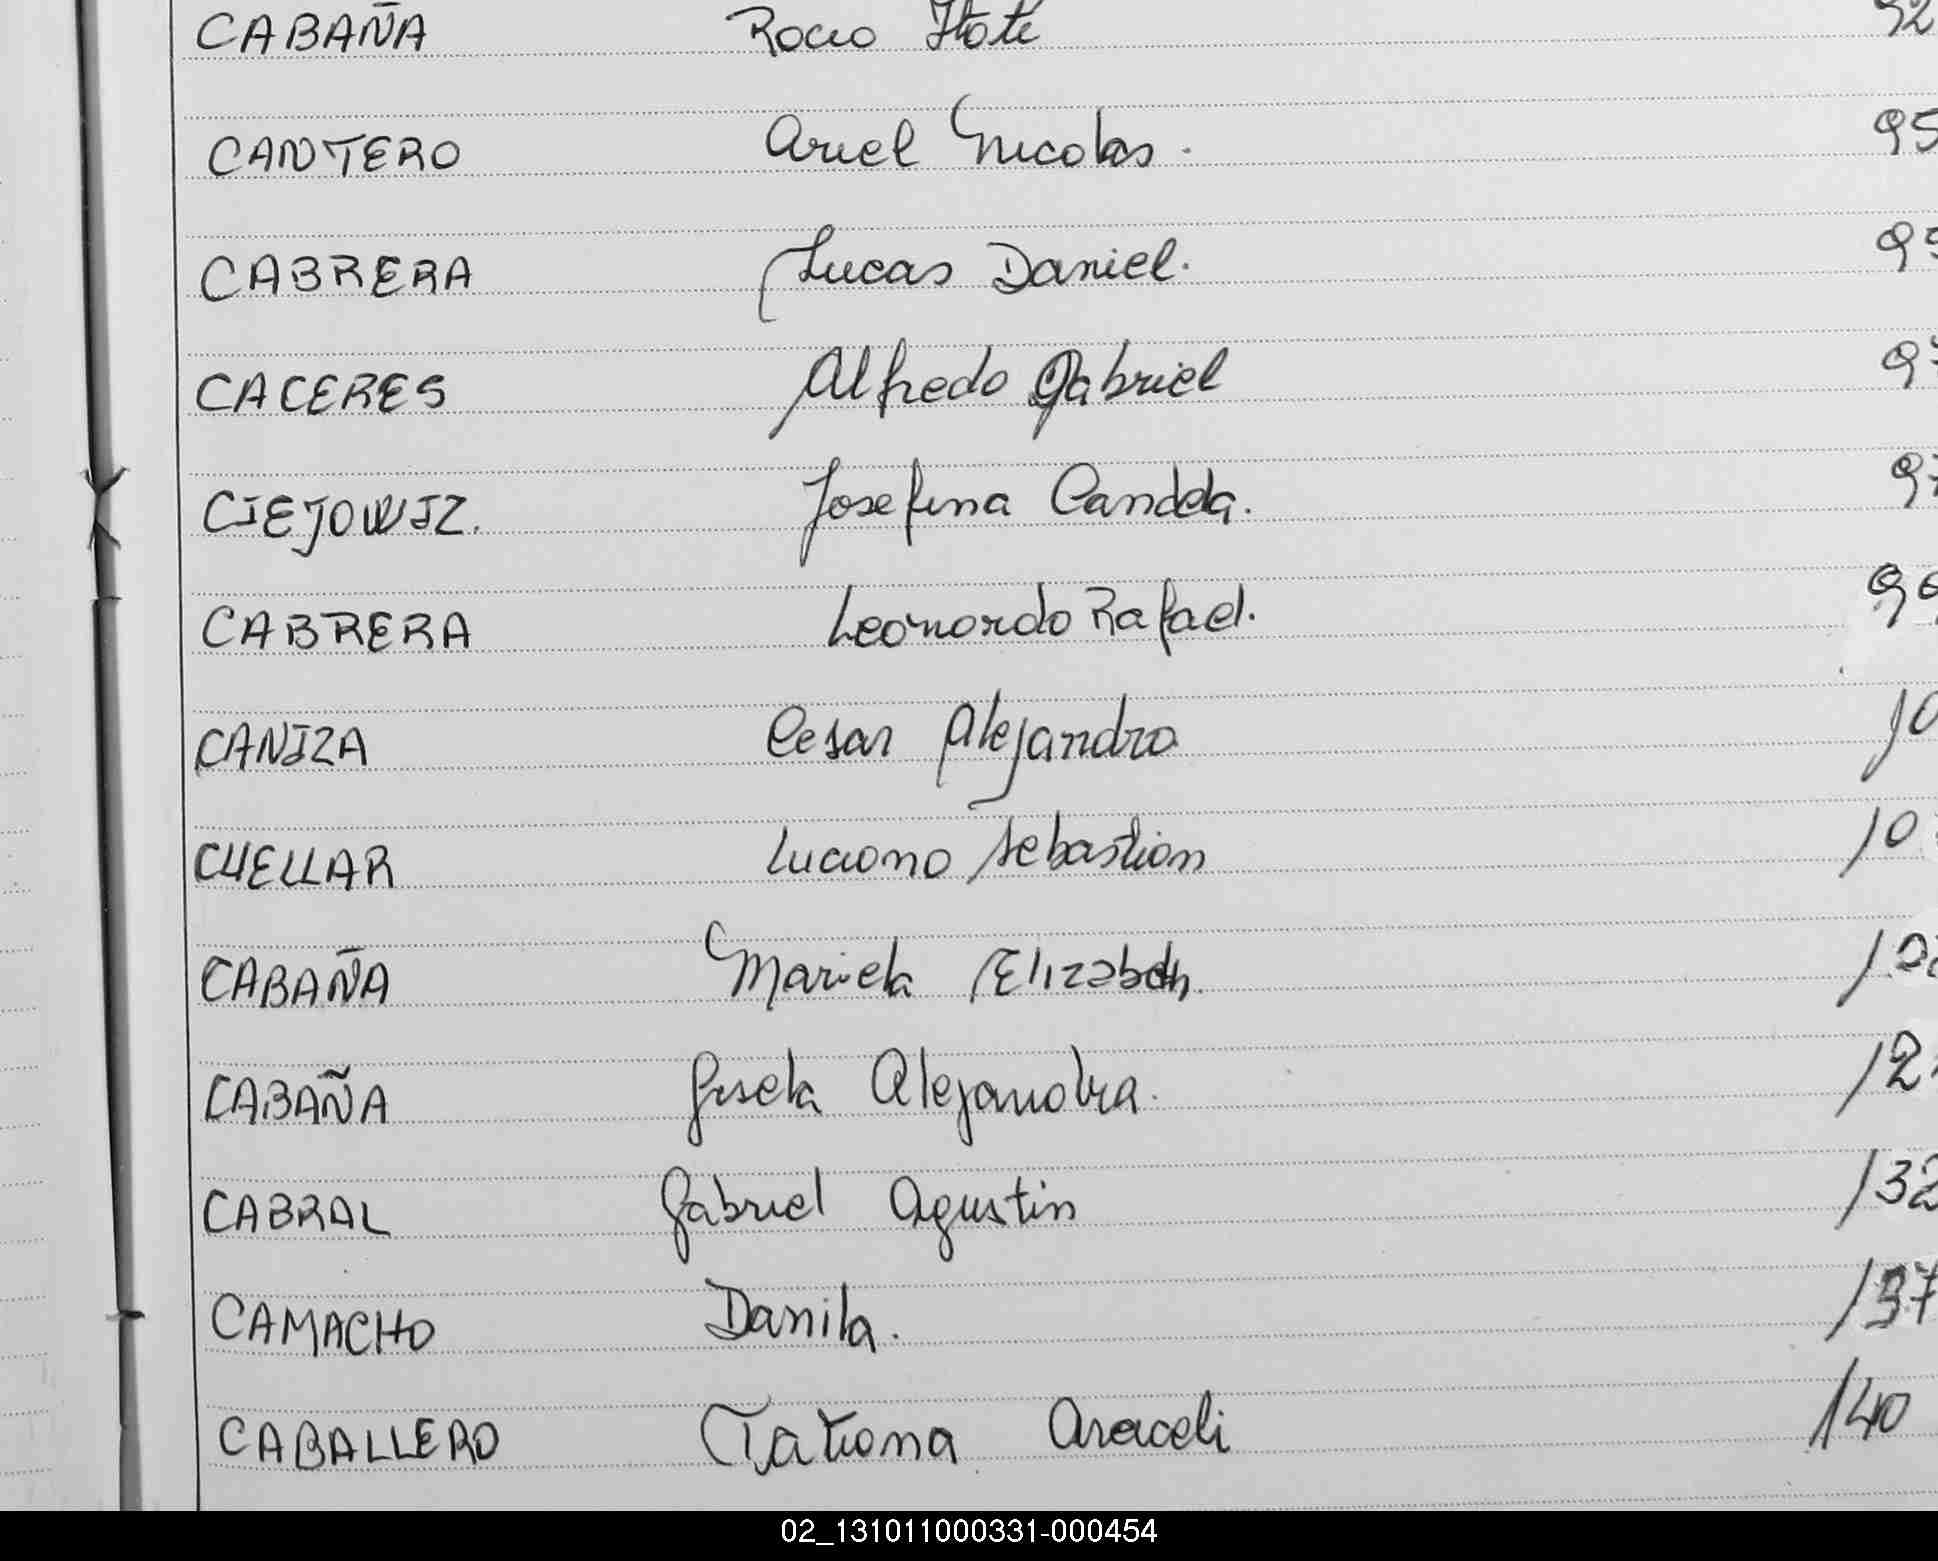 CABAÑA Rocio 92
CANTERO Ariel Nicolas. 95
CABRERA Lucas Daniel. 95
CACERES Alfredo Gabriel 97
CIEJOWIZ. Josefina Candela. 97
CABRERA Leonardo Rafael.
CANIZA Cesar Alejandro 10
CUELLAR Luciano Sebastian 10
CABAÑA Mariela Elizabeth.
CABAÑA Gisela Alejandra. 12
CABRAL Gabriel Agustin 132
CAMACHO Danila. 137
CABALLERO Tatiana Araceli 140
02_131011000331-000454